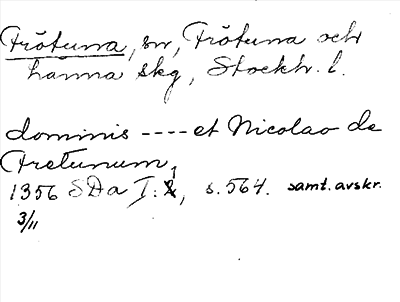 Frötuna, sn, Frötuna och
Länna skg, Stockh. l.
dominis ---- et Nicolao de
Fretunum,
1356 SDa I:1, s. 564. samt. avskr.
3/11